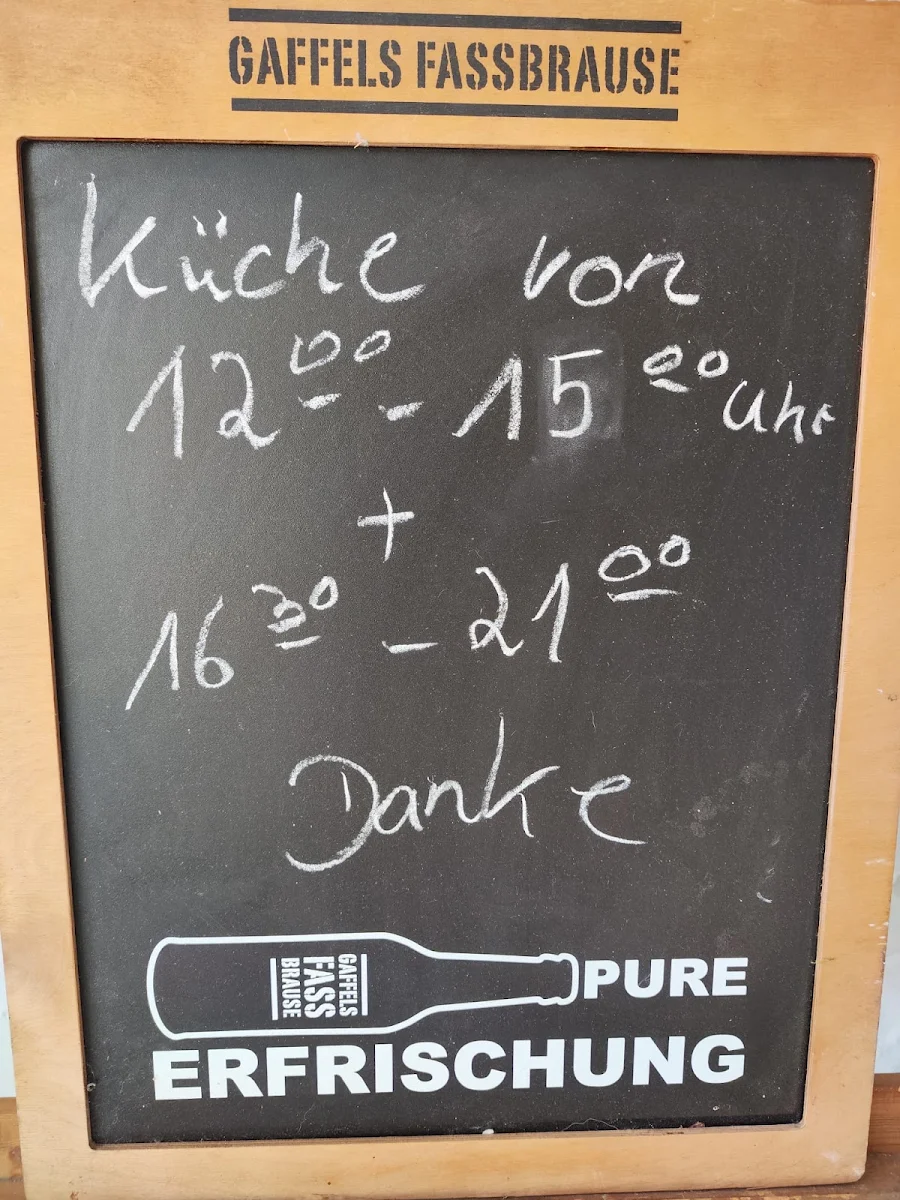 GAFFELS FASSBRAUSE
Küche von
12 00 - 15 00 Uhr
+
16 30 - 21 00
Danke
GAFFELS
FASS
BRAUSE
PURE
ERFRISCHUNG